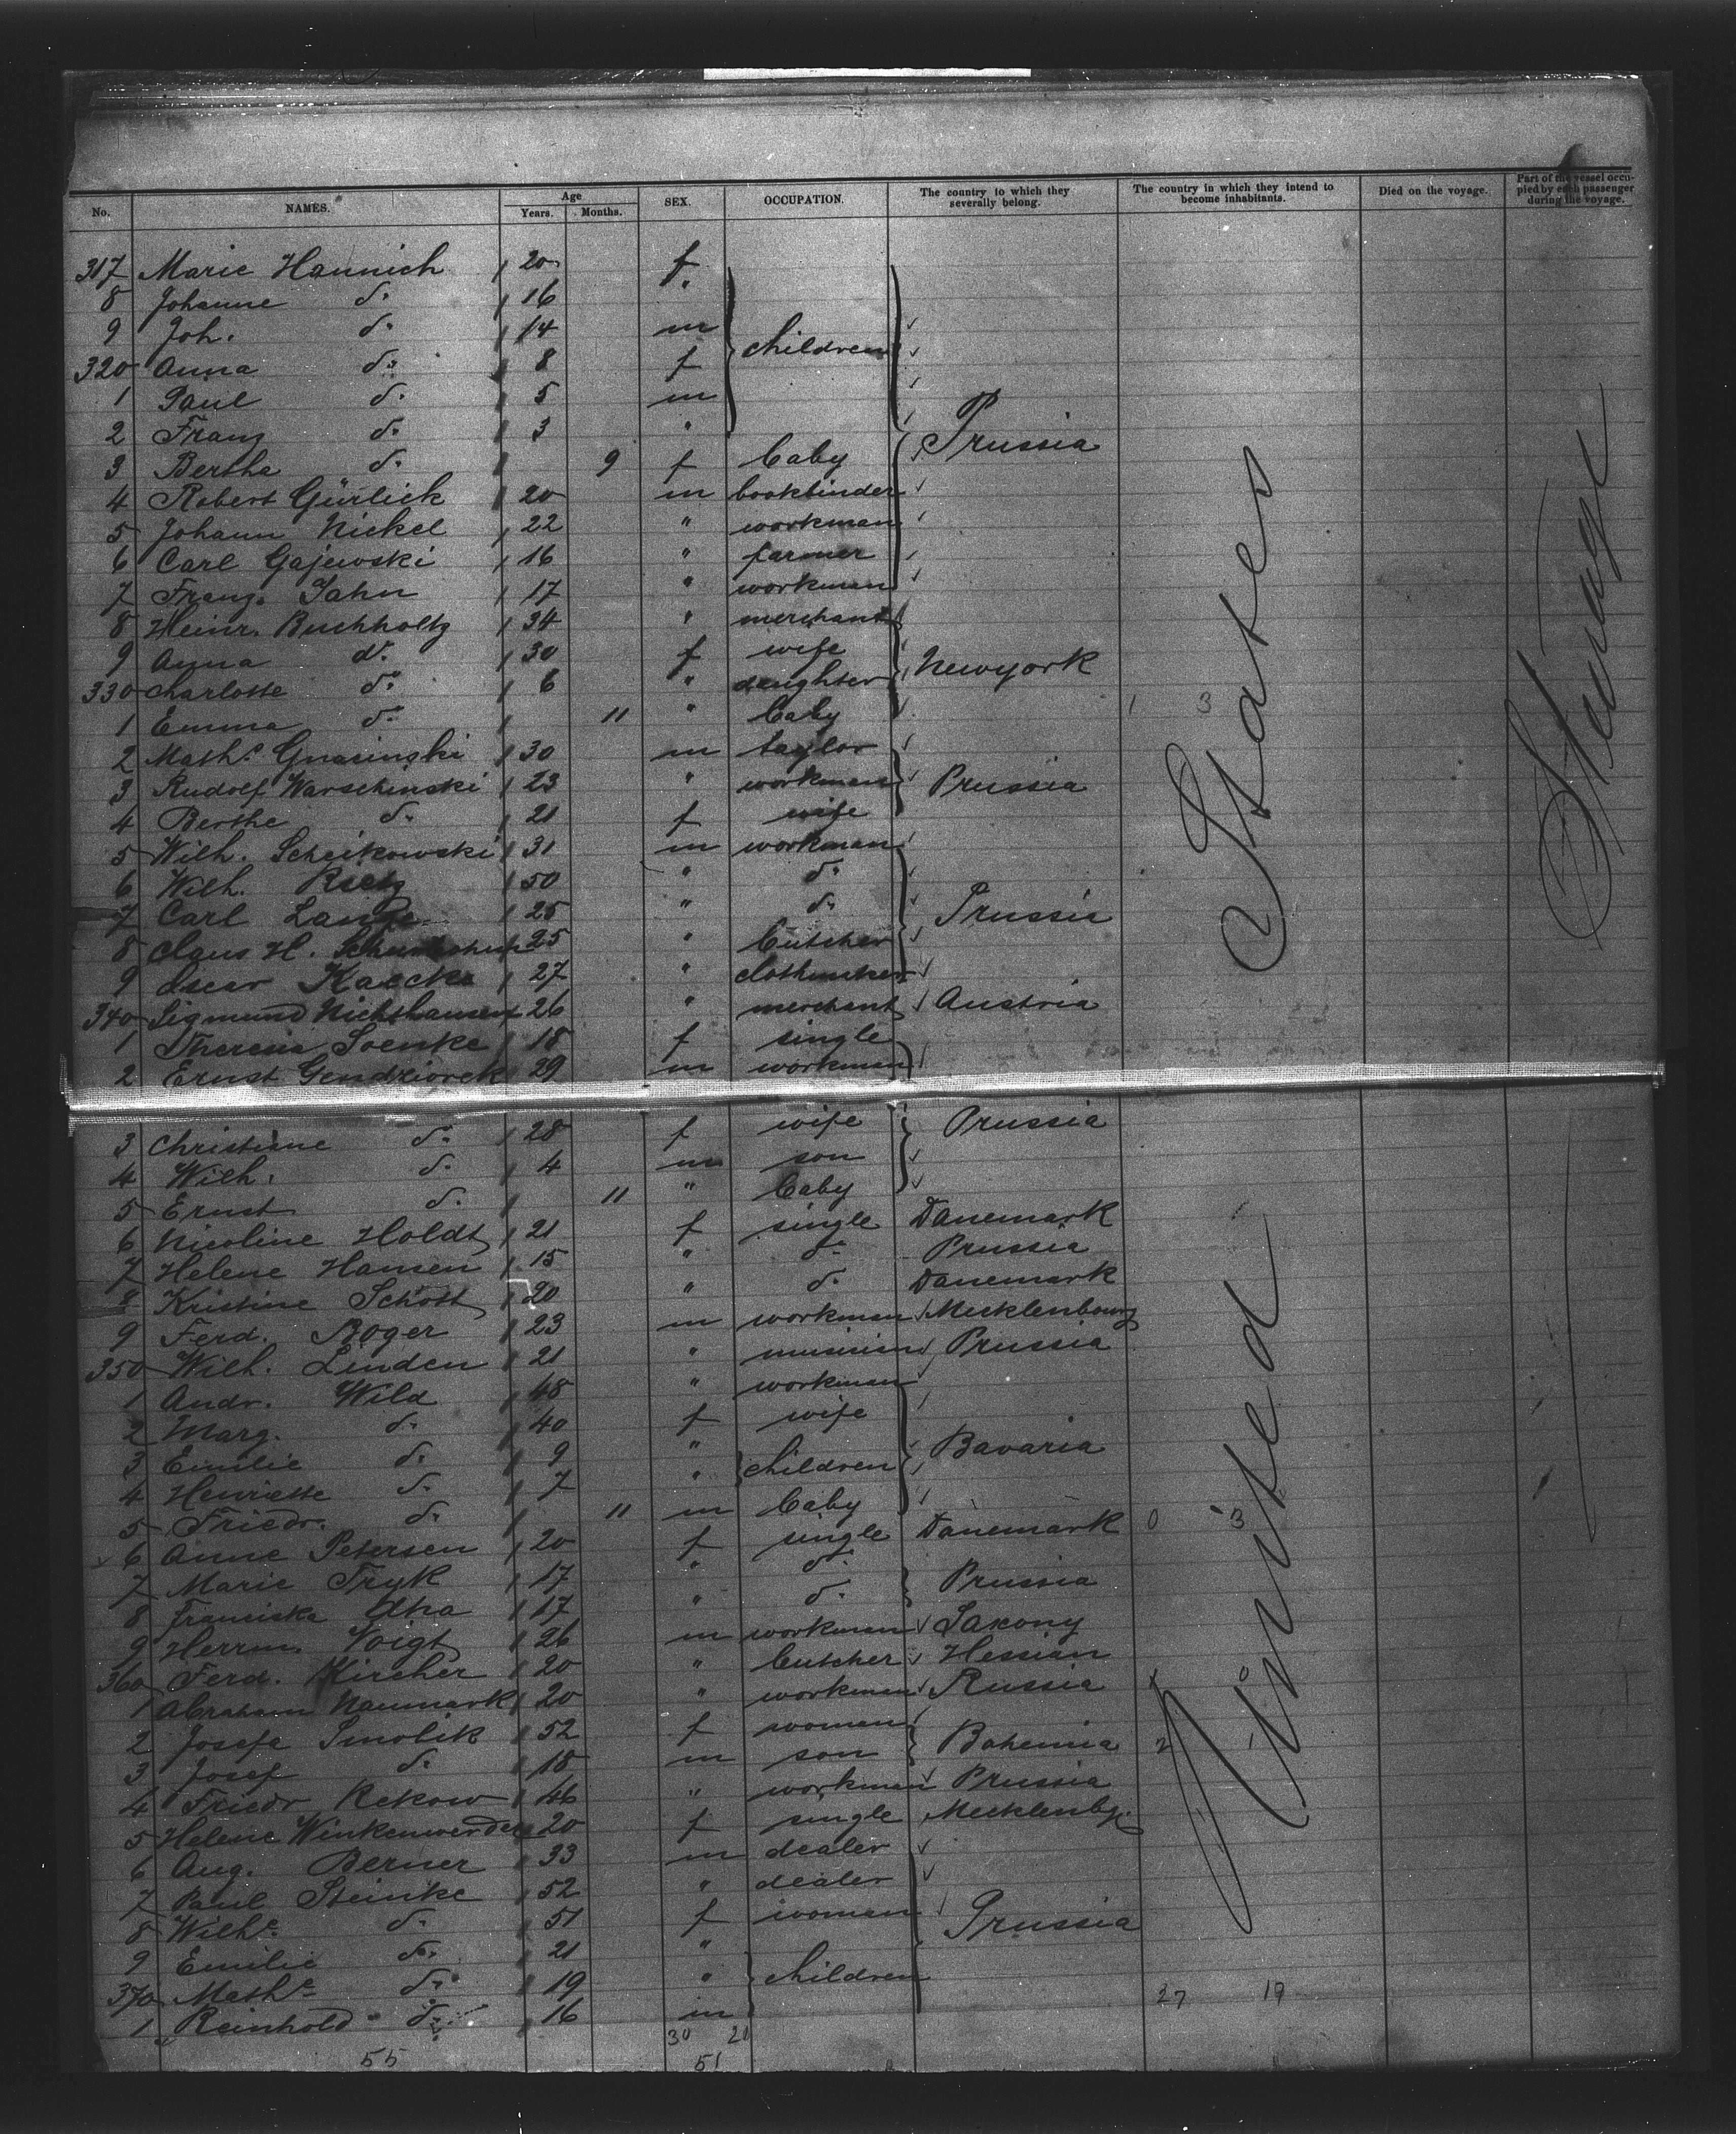 No. NAMES. Age Years. Months. SEX. OCCUPATION. The country to which they severally belong. The country in which they intend to become inhabitants. Died on the voyage. Part of the vessel occupied by each passenger during the voyage.
317 Marie Hannich 20 f
8 Johanne do. 16 "
9 Joh. do. 14 m children
320 Anna do. 8 f
1 Paul do. 5 m
2 Franz do. 3 " Prussia
3 Bertha do. 9 f baby
4 Robert Gürlich 20 m bookbinder
5 Johann Nickel 22 " workman
6 Carl Gajewski 16 " farmer
7 Franz Jahn 17 " workman
8 Heinr. Buchholtz 34 " merchant
9 Anna do. 30 f wife Newyork
330 Charlotte do. 6 " daughter
1 Emma do. 11 " baby 1 3
2 Mathe. Gnasinski 30 m taylor
3 Rudolf Warschinski 23 " workman Prussia
4 Berthe do. 21 f wife
5 Wilh. Scheikowski 31 m workman
6 Wilh. 50 " do.
7 Carl Lange 25 " do. Prussia
8 Claus H. 25 " butcher
9 Oscar Kaecke 27 " clothmaker
340 Sigmund Nichthauser 26 " merchant Austria
1 Theresia Soenke 18 f single
2 Ernst Gendziorek 29 m workman
3 Christiane do. 28 f wife Prussia
4 Wilh. do. 4 m son
5 Ernst do. 11 " baby
6 Nicoline Holdt 21 f single Danemark
7 Helene Hansen 15 " do. Prussia
8 Kristine Schott 20 " do. Danemark
9 Ferd. Boger 23 m workman Mecklenbourg
350 Wilh. Linden 21 " musician Prussia
1 Andr. Wild 48 " workman
2 Marg. do. 40 f wife
3 Emilie do. 9 " children Bavaria
4 Henriette do. 7 "
5 Friedr. do. 11 m baby
6 Anne Petersen 20 f single Danemark 0 3
7 Marie Tryk 17 " do. Prussia
8 Franciska 17 " do.
9 Herrm. Voigt 26 m workman Saxony
360 Ferd. Kircher 20 " butcher Hessian
1 Abraham Naumark 20 " workman Russia 1 0
2 Josefa Smolik 52 f woman Bohemia 2 1
3 Josef do. 18 m son
4 Friedr Rekow 46 " workman Prussia
5 Helene Winkenwerder 20 f single Mecklenbg.
6 Aug. Berner 33 m dealer
7 Paul Steinke 52 " dealer
8 Wilhe. do. 51 f woman Prussia
9 Emilie do. 21 " children
370 Mathe. do. 19 "
1 Reinhold do. 16 m 27 19
30 21
55 51
United States
Steerage